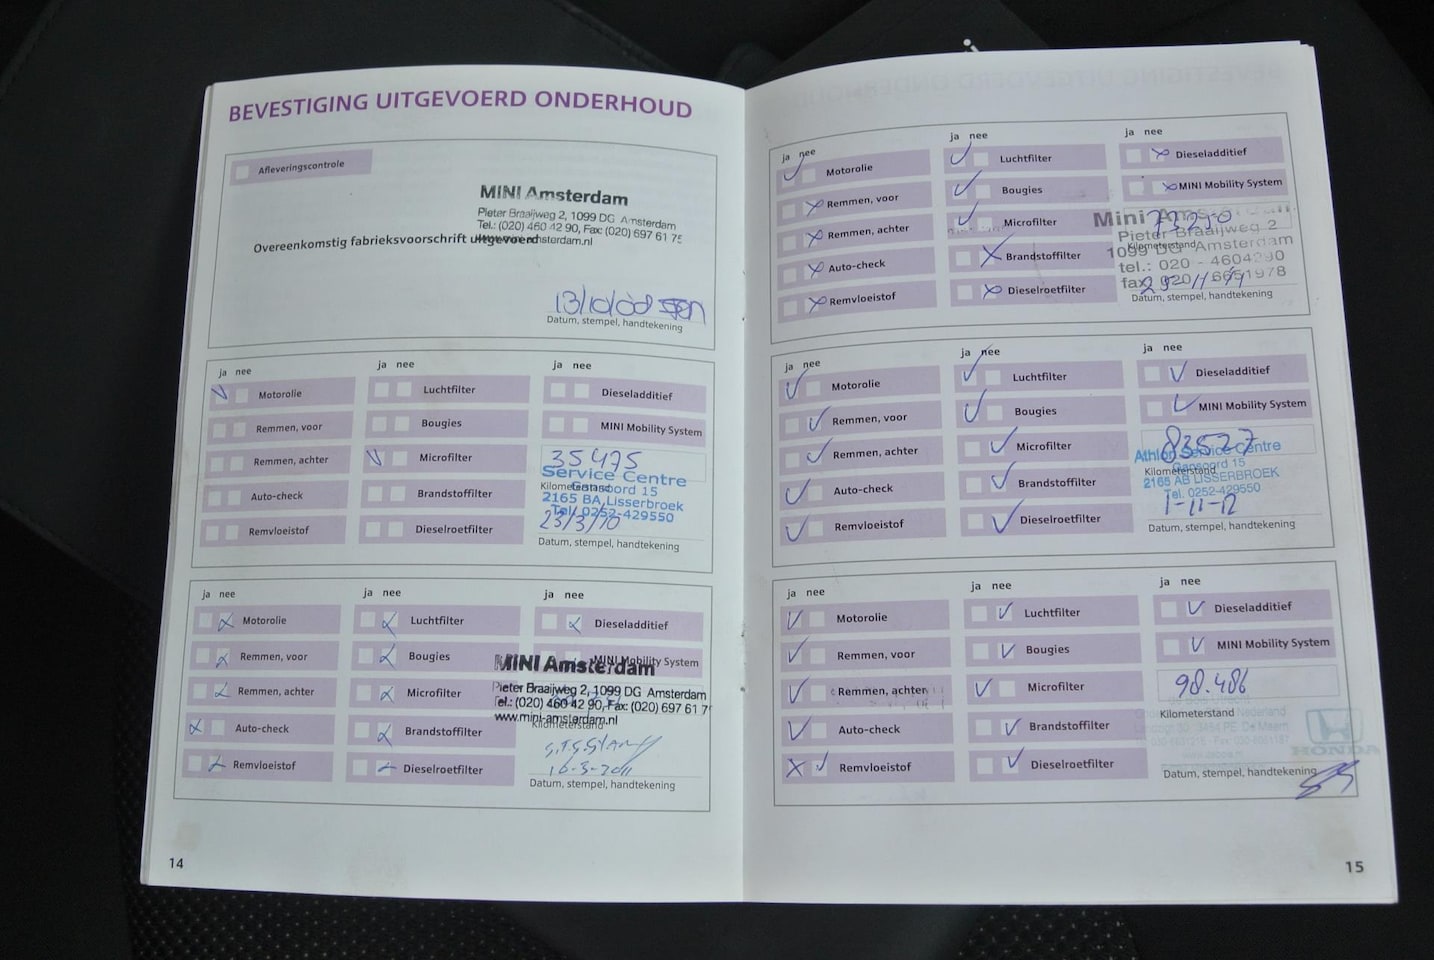 BEVESTIGING UITGEVOERD ONDERHOUD
Afleveringscontrole
MINI Amsterdam
Pieter Braaijweg 2, 1099 DG Amsterdam
Tel.: (020) 460 42 90, Fax: (020) 697 61 75
Overeenkomstig fabrieksvoorschrift uitgevoerd
13/10/08
Datum, stempel, handtekening
ja nee
ja nee
ja nee
Motorolie
Luchtfilter
Dieseladditief
Remmen, voor
Bougies
MINI Mobility System
Remmen, achter
Microfilter
35475
Kilometerstand
Auto-check
Brandstoffilter
Service Centre
Gansoord 15
2165 BA Lisserbroek
Tel. 0252-429550
23/3/10
Remvloeistof
Dieselroetfilter
Datum, stempel, handtekening
ja nee
ja nee
ja nee
Motorolie
Luchtfilter
Dieseladditief
Remmen, voor
Bougies
MINI Mobility System
MINI Amsterdam
Remmen, achter
Microfilter
Pieter Braaijweg 2, 1099 DG Amsterdam
Tel.: (020) 460 42 90, Fax: (020) 697 61 7
www.mini-amsterdam.nl
Kilometerstand
Auto-check
Brandstoffilter
16-3-2011
Remvloeistof
Dieselroetfilter
Datum, stempel, handtekening
14
ja nee
ja nee
ja nee
Motorolie
Luchtfilter
Dieseladditief
Remmen, voor
Bougies
MINI Mobility System
Remmen, achter
Microfilter
73290
Kilometerstand
Mini Amsterdam
Pieter Braaijweg 2
1099 DG Amsterdam
tel.: 020 - 4604290
fax: 020 - 6651978
Auto-check
Brandstoffilter
Remvloeistof
Dieselroetfilter
Datum, stempel, handtekening
ja nee
ja nee
ja nee
Motorolie
Luchtfilter
Dieseladditief
Remmen, voor
Bougies
MINI Mobility System
Remmen, achter
Microfilter
83527
Kilometerstand
Athlon Service Centre
Gansoord 15
2165 AB LISSERBROEK
Tel. 0252-429550
Auto-check
Brandstoffilter
1-11-12
Remvloeistof
Dieselroetfilter
Datum, stempel, handtekening
ja nee
ja nee
ja nee
Motorolie
Luchtfilter
Dieseladditief
Remmen, voor
Bougies
MINI Mobility System
Remmen, achter
Microfilter
98.486
Kilometerstand
Auto-check
Brandstoffilter
HONDA
Remvloeistof
Dieselroetfilter
Datum, stempel, handtekening
15